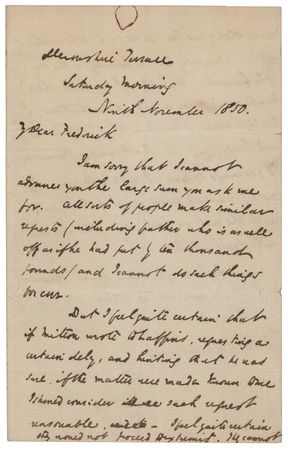 Devonshire Terrace
Saturday Morning
Ninth November 1850.
My Dear Frederick
I am sorry that I cannot
advance you the large sum you ask me
for. All sorts of people make similar
requests (including father who is as well
off as if he had put by ten thousand
pounds) and I cannot do such things
for ever.
But I feel quite certain that
if Mitton wrote to, requesting a
certain delay, and hinting that he was
sure, if the matter were made known to me
I should consider such request
reasonable, I feel quite certain
would not proceed to extremes. cannot